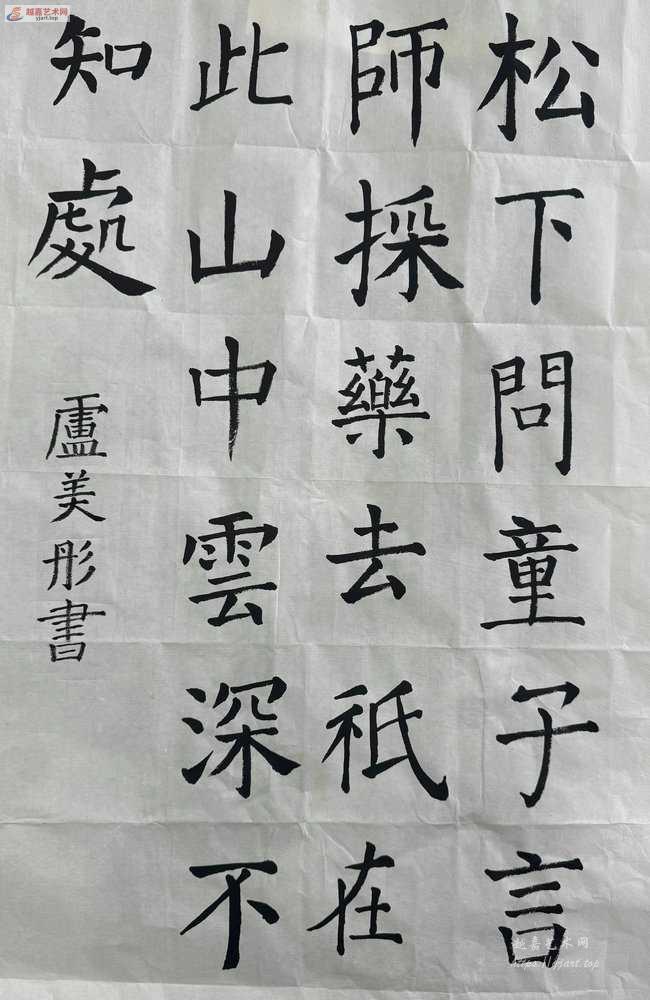 松下問童子言
師採藥去祇在
此山中雲深不
知處
盧美彤書
越嘉艺术网
yjart.top
越嘉艺术网
https://yjart.top